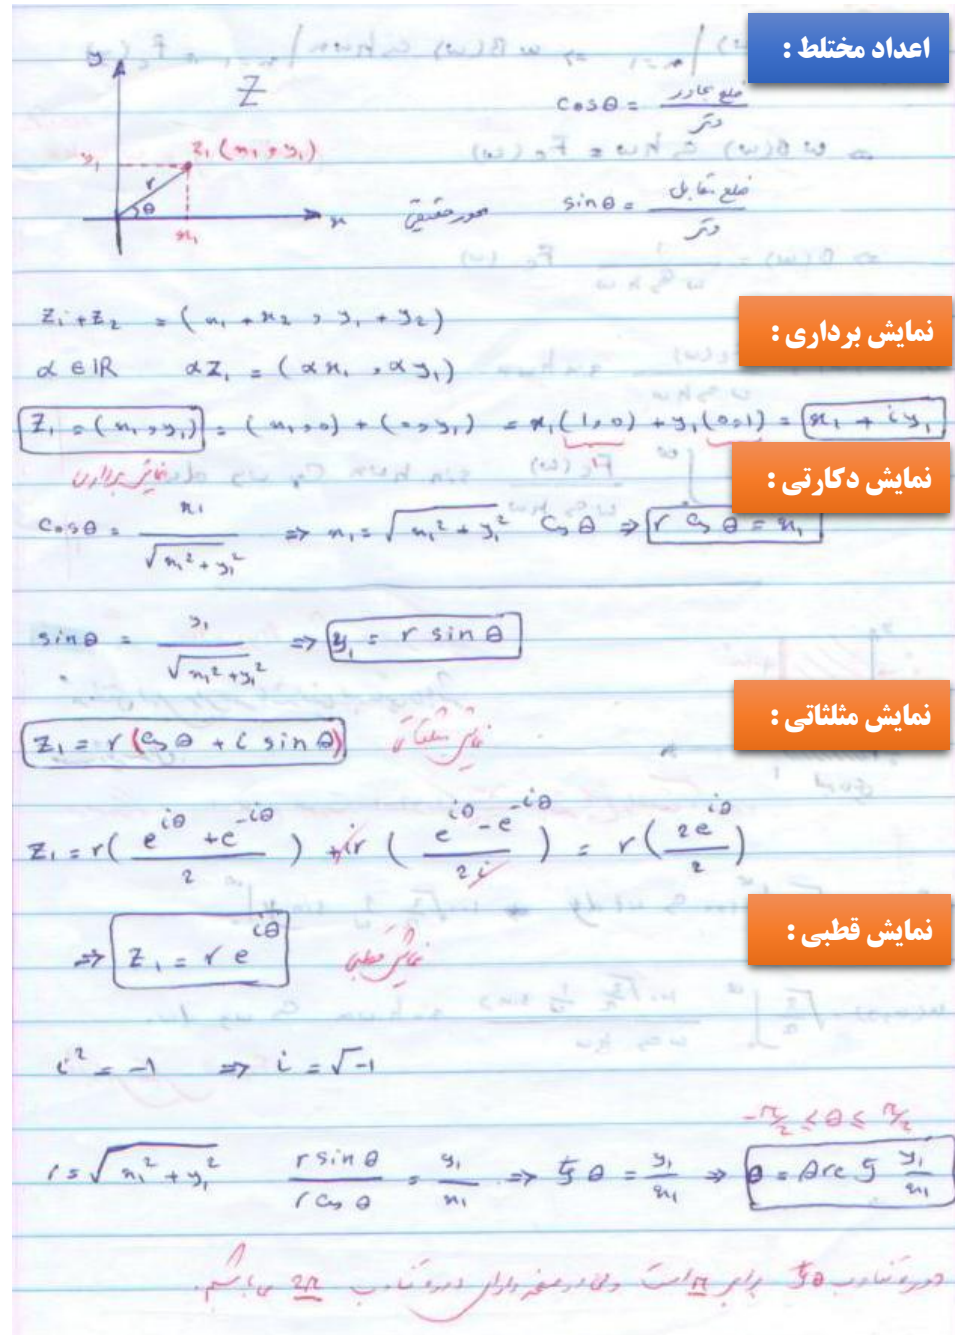 اعداد مختلط :
y
Z
cosθ = ضلع مجاور / وتر
z₁ (x₁ , y₁)
y₁
r
θ
x
محور حقیقی
sinθ = ضلع مقابل / وتر
x₁
z₁ + z₂ = (x₁ + x₂ , y₁ + y₂)
نمایش برداری :
α ∈ IR αz₁ = (αx₁ , αy₁)
z₁ = (x₁ , y₁) = (x₁ , 0) + (0 , y₁) = x₁(1 , 0) + y₁(0 , 1) = x₁ + iy₁
نمایش برداری
نمایش دکارتی :
cosθ = x₁ / √(x₁² + y₁²) ⇒ x₁ = √(x₁² + y₁²) Cosθ ⇒ r Cosθ = x₁
sinθ = y₁ / √(x₁² + y₁²) ⇒ y₁ = r sinθ
نمایش مثلثاتی :
z₁ = r (Cosθ + i sinθ) نمایش مثلثاتی
z₁ = r( (e^{iθ} + e^{-iθ}) / 2 ) + ir ( (e^{iθ} - e^{-iθ}) / 2i ) = r( 2e^{iθ} / 2 )
نمایش قطبی :
⇒ z₁ = r e^{iθ} نمایش قطبی
i² = -1 ⇒ i = √-1
-π/2 ≤ θ ≤ π/2
r = √(x₁² + y₁²) r sinθ / r Cosθ = y₁ / x₁ ⇒ tgθ = y₁ / x₁ ⇒ θ = Arc tg y₁ / x₁
دوره تناوب tgθ برابر π است ولی در صفحه دارای دوره تناوب 2π می باشیم.